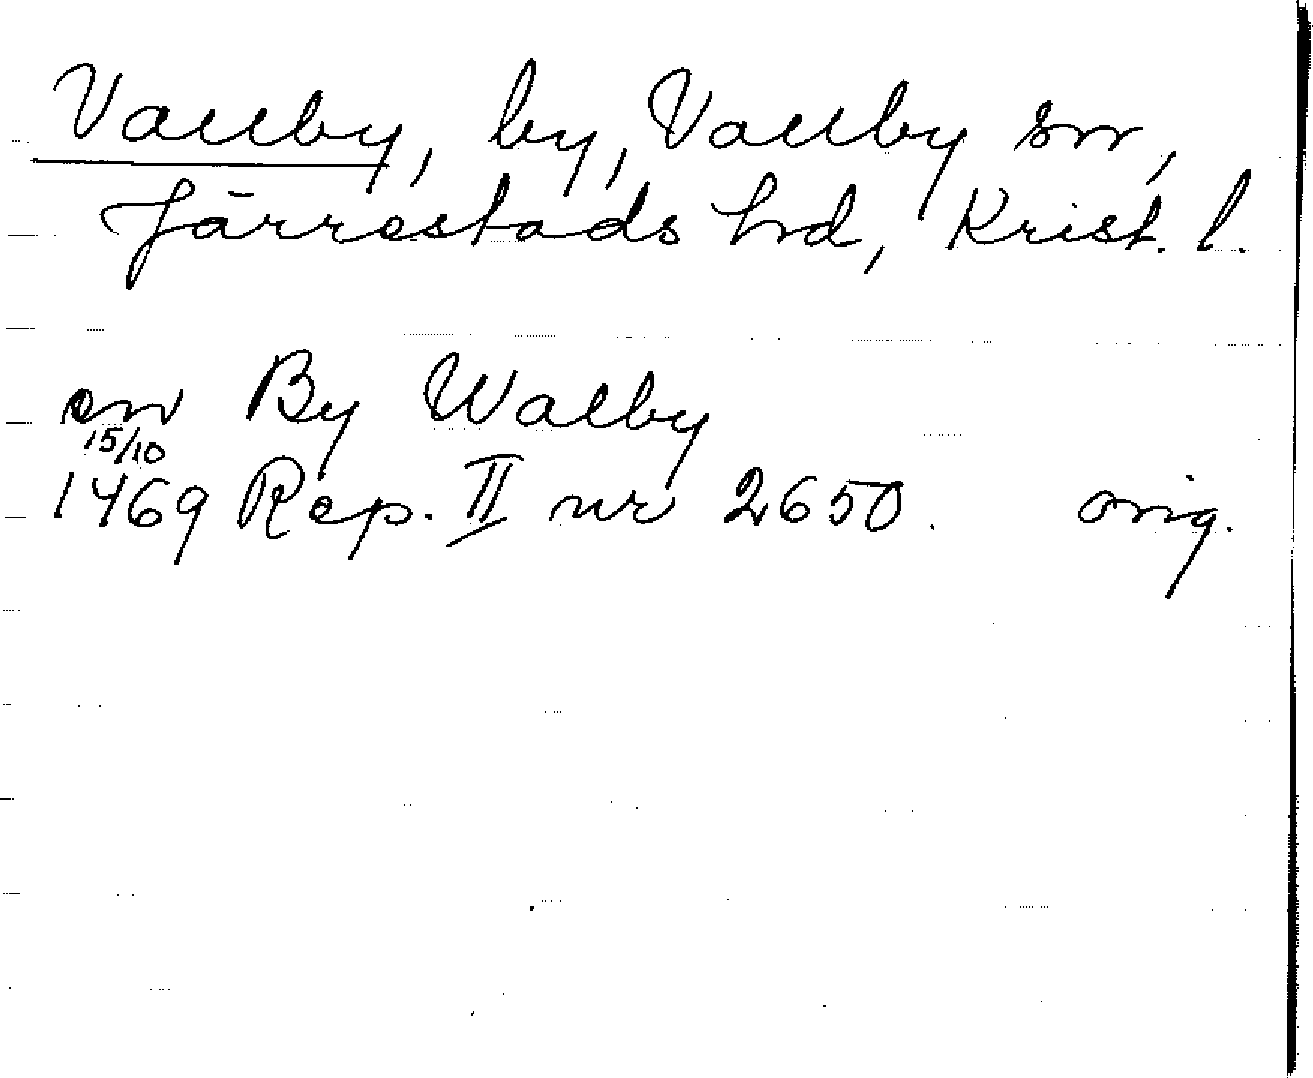 Vallby, by, Vallby sn,
Järrestads hd, Krist. l.
en By Walby
15/10
1469 Rep. II nr 2650. orig.